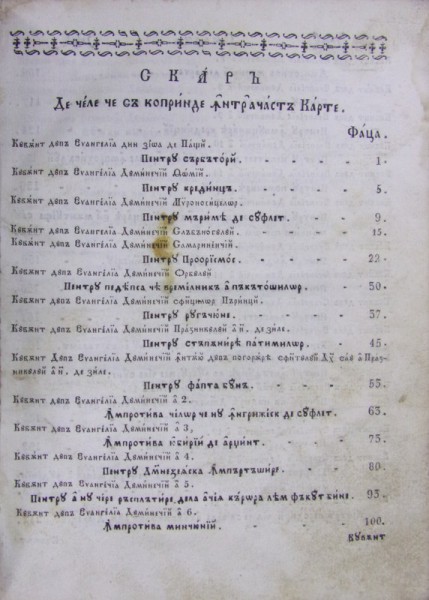 СКА́РЪ
Де че́ле че съ копри́нде ꙟтрꙋча́стъ Ка́рте.
Фа́ца.
Кꙋвѫ́нт дꙋпъ Еѵангелїа дин зїѡа де Па́щй
Пентрꙋ сърбъто́рй. - - - - 1.
Кꙋвѫнт дꙋпъ Еѵангелїа Дꙋмине́чїй Ѳѡмїй
Пентрꙋ креди́нцъ. - - - - 5.
Кꙋвѫнт дꙋпъ Еѵангелїа Дꙋмине́чїй Мѵроно́сицелѡр
Пентрꙋ мъри́ме де сꙋ́флет. - - - 9.
Кꙋвѫнт дꙋпъ Еѵангелїа Дꙋмине́чїй Слъбъно́гꙋлꙋй - - 15.
Кꙋвѫнт дꙋпъ Еѵангелїа Дꙋмине́чїй Самарине́нчїй
Пентрꙋ - - - 22.
Кꙋвѫнт дꙋпъ Еѵангелїа Дꙋмине́чїй О́рбꙋлꙋй
Пентрꙋ педѣ́пса чѣ времѣ́лникъ а пъкъто́шилѡр. - 30.
Кꙋвѫнт дꙋпъ Еѵангелїа Дꙋмине́чїй сфи́нцилѡр Пъри́нцй
Пентрꙋ рꙋгъчю́не. - - - - 37.
Кꙋвѫнт дꙋпъ Еѵангелїа Дꙋмине́чїй Пра́зникꙋлꙋй а́ й. де зи́ле.
Пентрꙋ стъпѫни́рѣ па́тимилѡр. - - - 45.
Кꙋвѫнт дꙋпъ Еѵангелїа Дꙋмине́чїй ꙟтѫю дꙋпъ погорѫ́рѣ сфѫ́нтꙋлꙋй Дх са́ꙋ а Пра́з-
никꙋлꙋй а й. де зи́ле.
Пентрꙋ фа́пта бꙋ́нъ. - - - 53.
Кꙋвѫнт дꙋпъ Еѵангелїа Дꙋмине́чїй а 2.
Ꙟпротива че́лѡр че нꙋ ꙟгриже́ск де сꙋ́флет. - 63.
Кꙋвѫнт дꙋпъ Еѵангелїа Дꙋмине́чїй а 3,
Ꙟпроти́ва юби́рїй де арџи́нт. - - - 73.
Кꙋвѫнт дꙋпъ Еѵангелїа Дꙋмине́чїй а 4.
Пентрꙋ Дꙋмнезеѧ́ска Ꙟпъртъши́ре. - - 80.
Кꙋвѫнт дꙋпъ Еѵангелїа Дꙋмине́чїй а 5.
Пентрꙋ а нꙋ че́ре ръсплъти́ре, дела ачїѧ ка́рѡра лѣм фъкꙋт би́не. - 93.
Кꙋвѫнт дꙋпъ Еѵангелїа Дꙋмине́чїй а 6.
Ꙟпроти́ва минчю́нїй. - - - 100.
Кꙋвѫнт